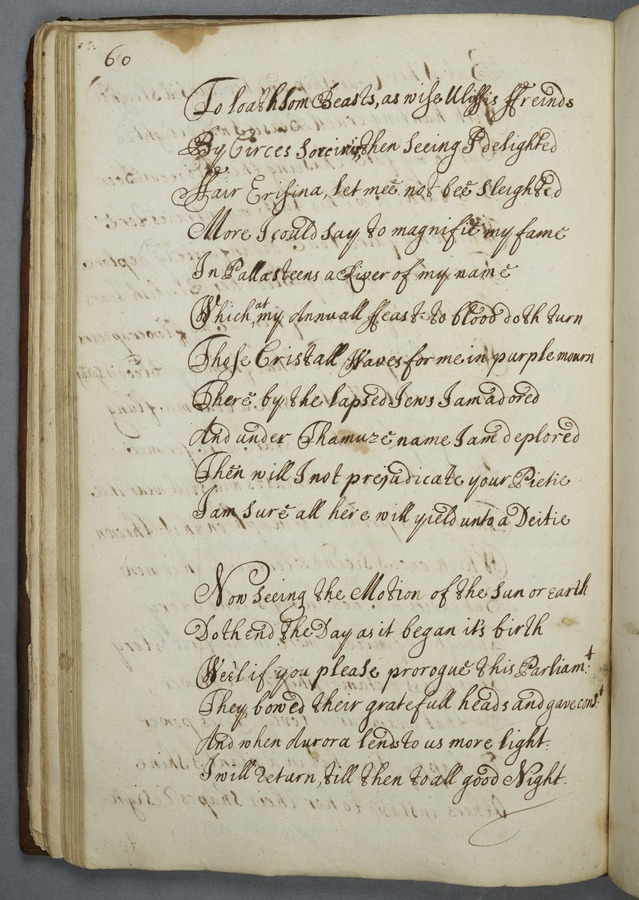 60
To loathsom Beasts, as wise Ulissis ffreinds
By Circes then seeing I delighted
Fair Erisina, let mee not bee sleighted
More I could say to magnifie my fame
In Pallasteens a River of my name
Which, at my Annuall ffeast to blood doth turn
Those Cristall Waves for me in purple mourn
There by the lapsed Jews I am adored
And under Thamuze name I am deplored
Then will I not prejudicate your Pietie
I am sure all here will yield unto a Deitie
Now seeing the Motion of the Sun or earth
Doth end the Day as it began it's birth
Wee'l if you please prorogue this Parliamt:
They bowed their gratefull heads and gave const
And when Aurora lends to us more light:
I will return, till then to all good Night.